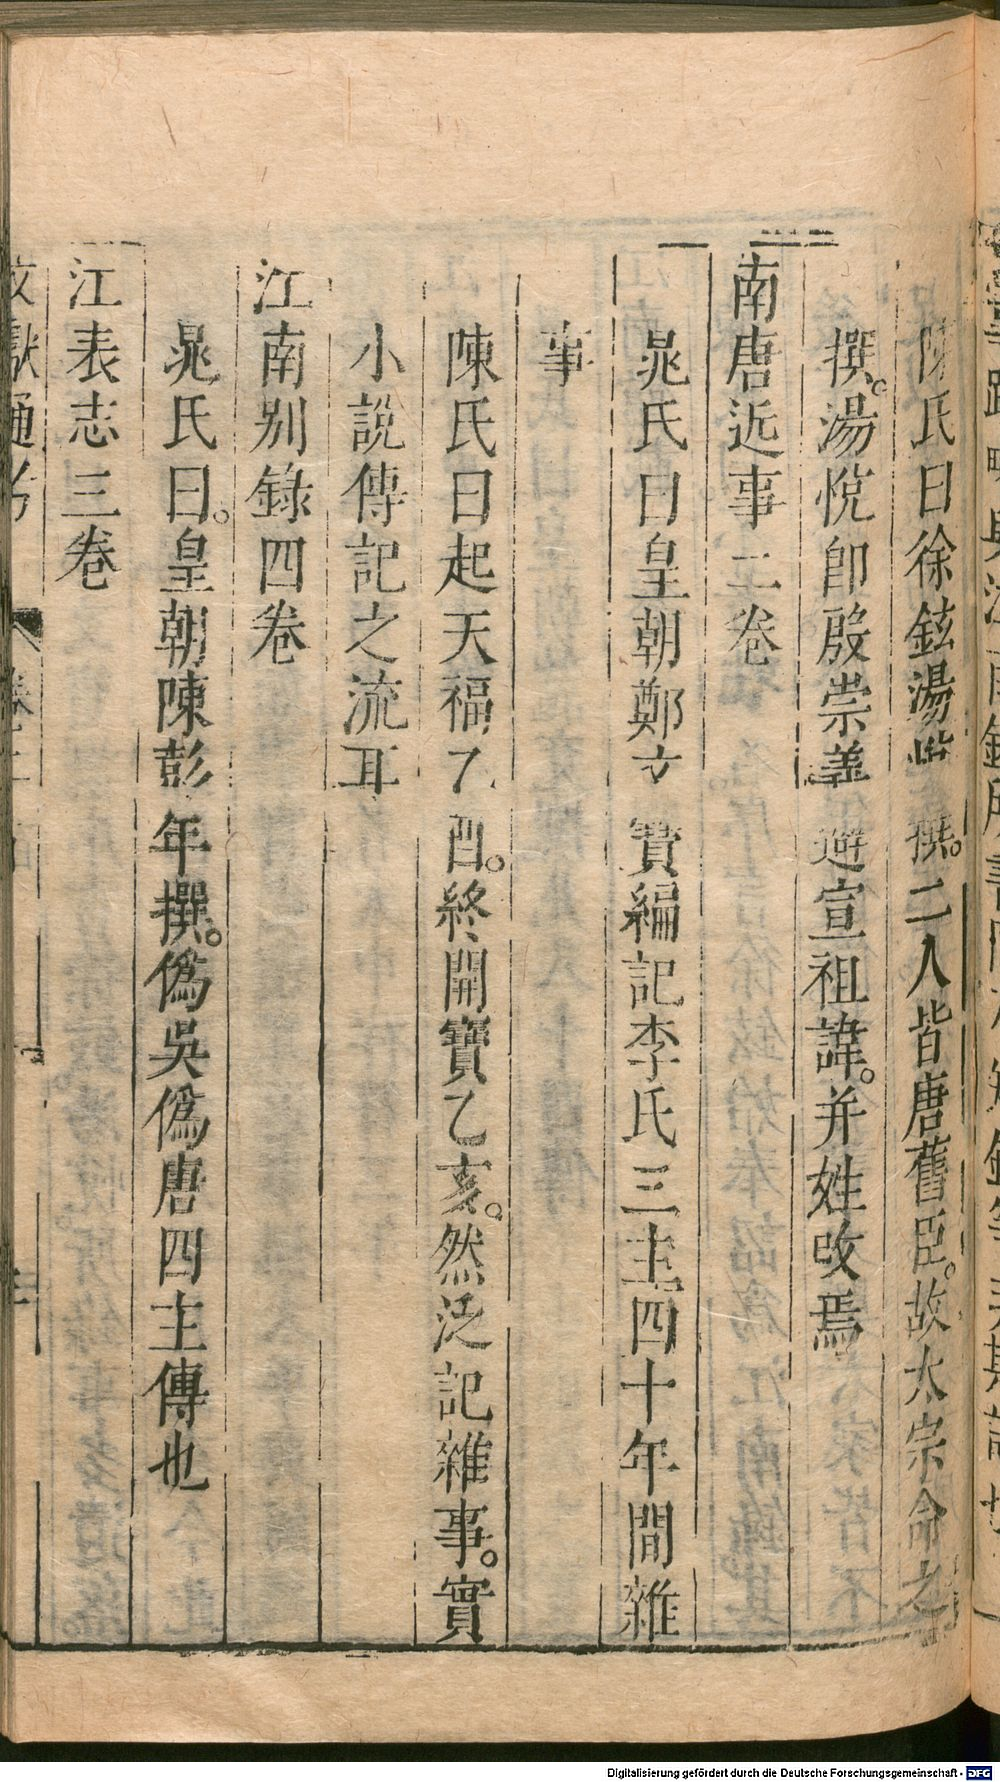 陳氏曰徐鉉湯悅撰。二人皆唐舊臣。故太宗命之
撰。湯悅卽殷崇義避宣祖諱。并姓改焉
南唐近事二卷
晁氏曰皇朝鄭文寶編記李氏三主四十年間雜
事
陳氏曰起天福乙酉。終開寶乙亥。然泛記雜事。實
小說傳記之流耳
江南別錄四卷
晁氏曰。皇朝陳彭年撰。僞吳僞唐四主傳也
江表志三卷
文獻通考 卷二百
Digitalisierung gefördert durch die Deutsche Forschungsgemeinschaft - DFG